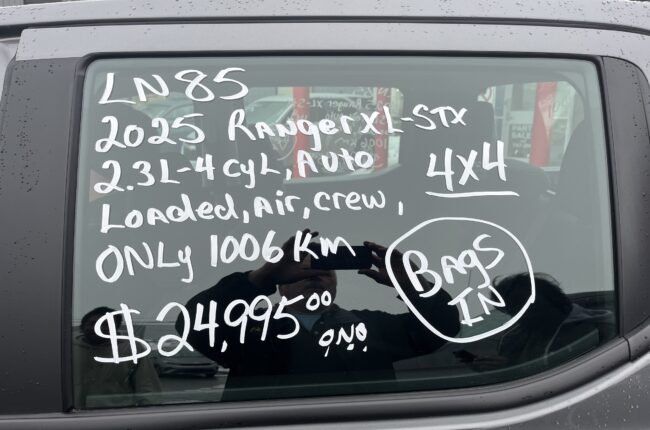 LN85
2025 Ranger XL-STX
2.3L-4cyl, Auto
4x4
Loaded, Air, Crew,
ONLY 1006 Km
BAGS
IN
$24,995.00
ONO
PART
SALE